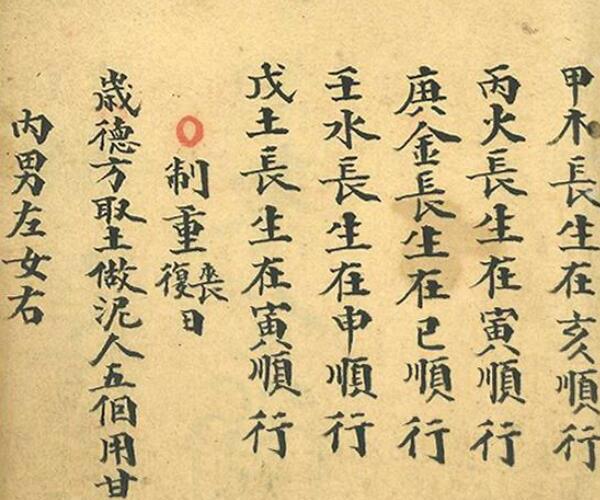 甲木長生在亥順行
丙火長生在寅順行
庚金長生在巳順行
壬水長生在申順行
戊土長生在寅順行
制重喪復日
歳德方取土做泥人五個用甘
内男左女右